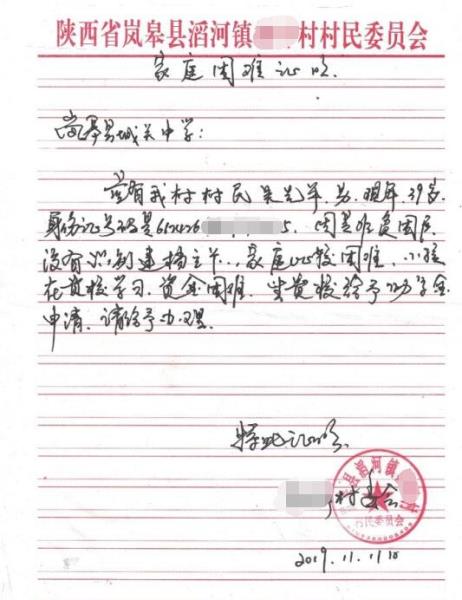 陕西省岚皋县滔河镇 村村民委员会
家庭困难证明
岚皋县城关中学:
兹有我村村民 男.现年39岁.
身份证号码是612426 5.因是非贫困户
没有 建档立卡..家庭比较困难.小孩
在贵校学习.资金困难.望贵校给予助学金
申请.请给予办理.
特此证明.
村委会
县滔河镇 村
村民委员会
2019.11.11